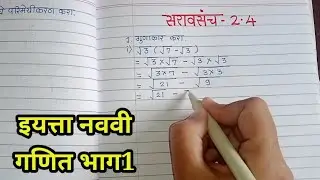 परिमेयीकरण करा.
सरावसंच - 2.4
1. गुणाकार करा.
i) √3 (√7 - √3)
= √3 × √7 - √3 × √3
= √3×7 - √3×3
= √21 - √9
= √21 -
इयत्ता नववी
गणित भाग1